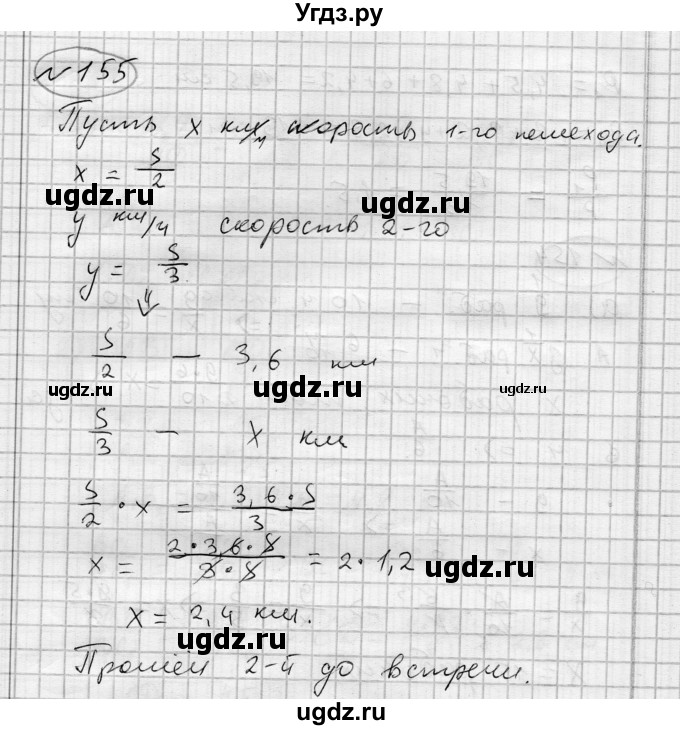 Угдз.ру
№155
Пусть x км/ч скорость 1-го пешехода.
x = S/2
ugdz.ru ugdz.ru
y км/ч скорость 2-го
y = S/3
S/2 — 3,6 км
ugdz.ru ugdz.ru ugdz.ru
S/3 — x км
S/2 · x = 3,6 · S/3
x = 2·3,6·S/3·S = 2·1,2
ugdz.ru
x = 2,4 км.
ugdz.ru
Прошёл 2-й до встречи.
ugdz.ru